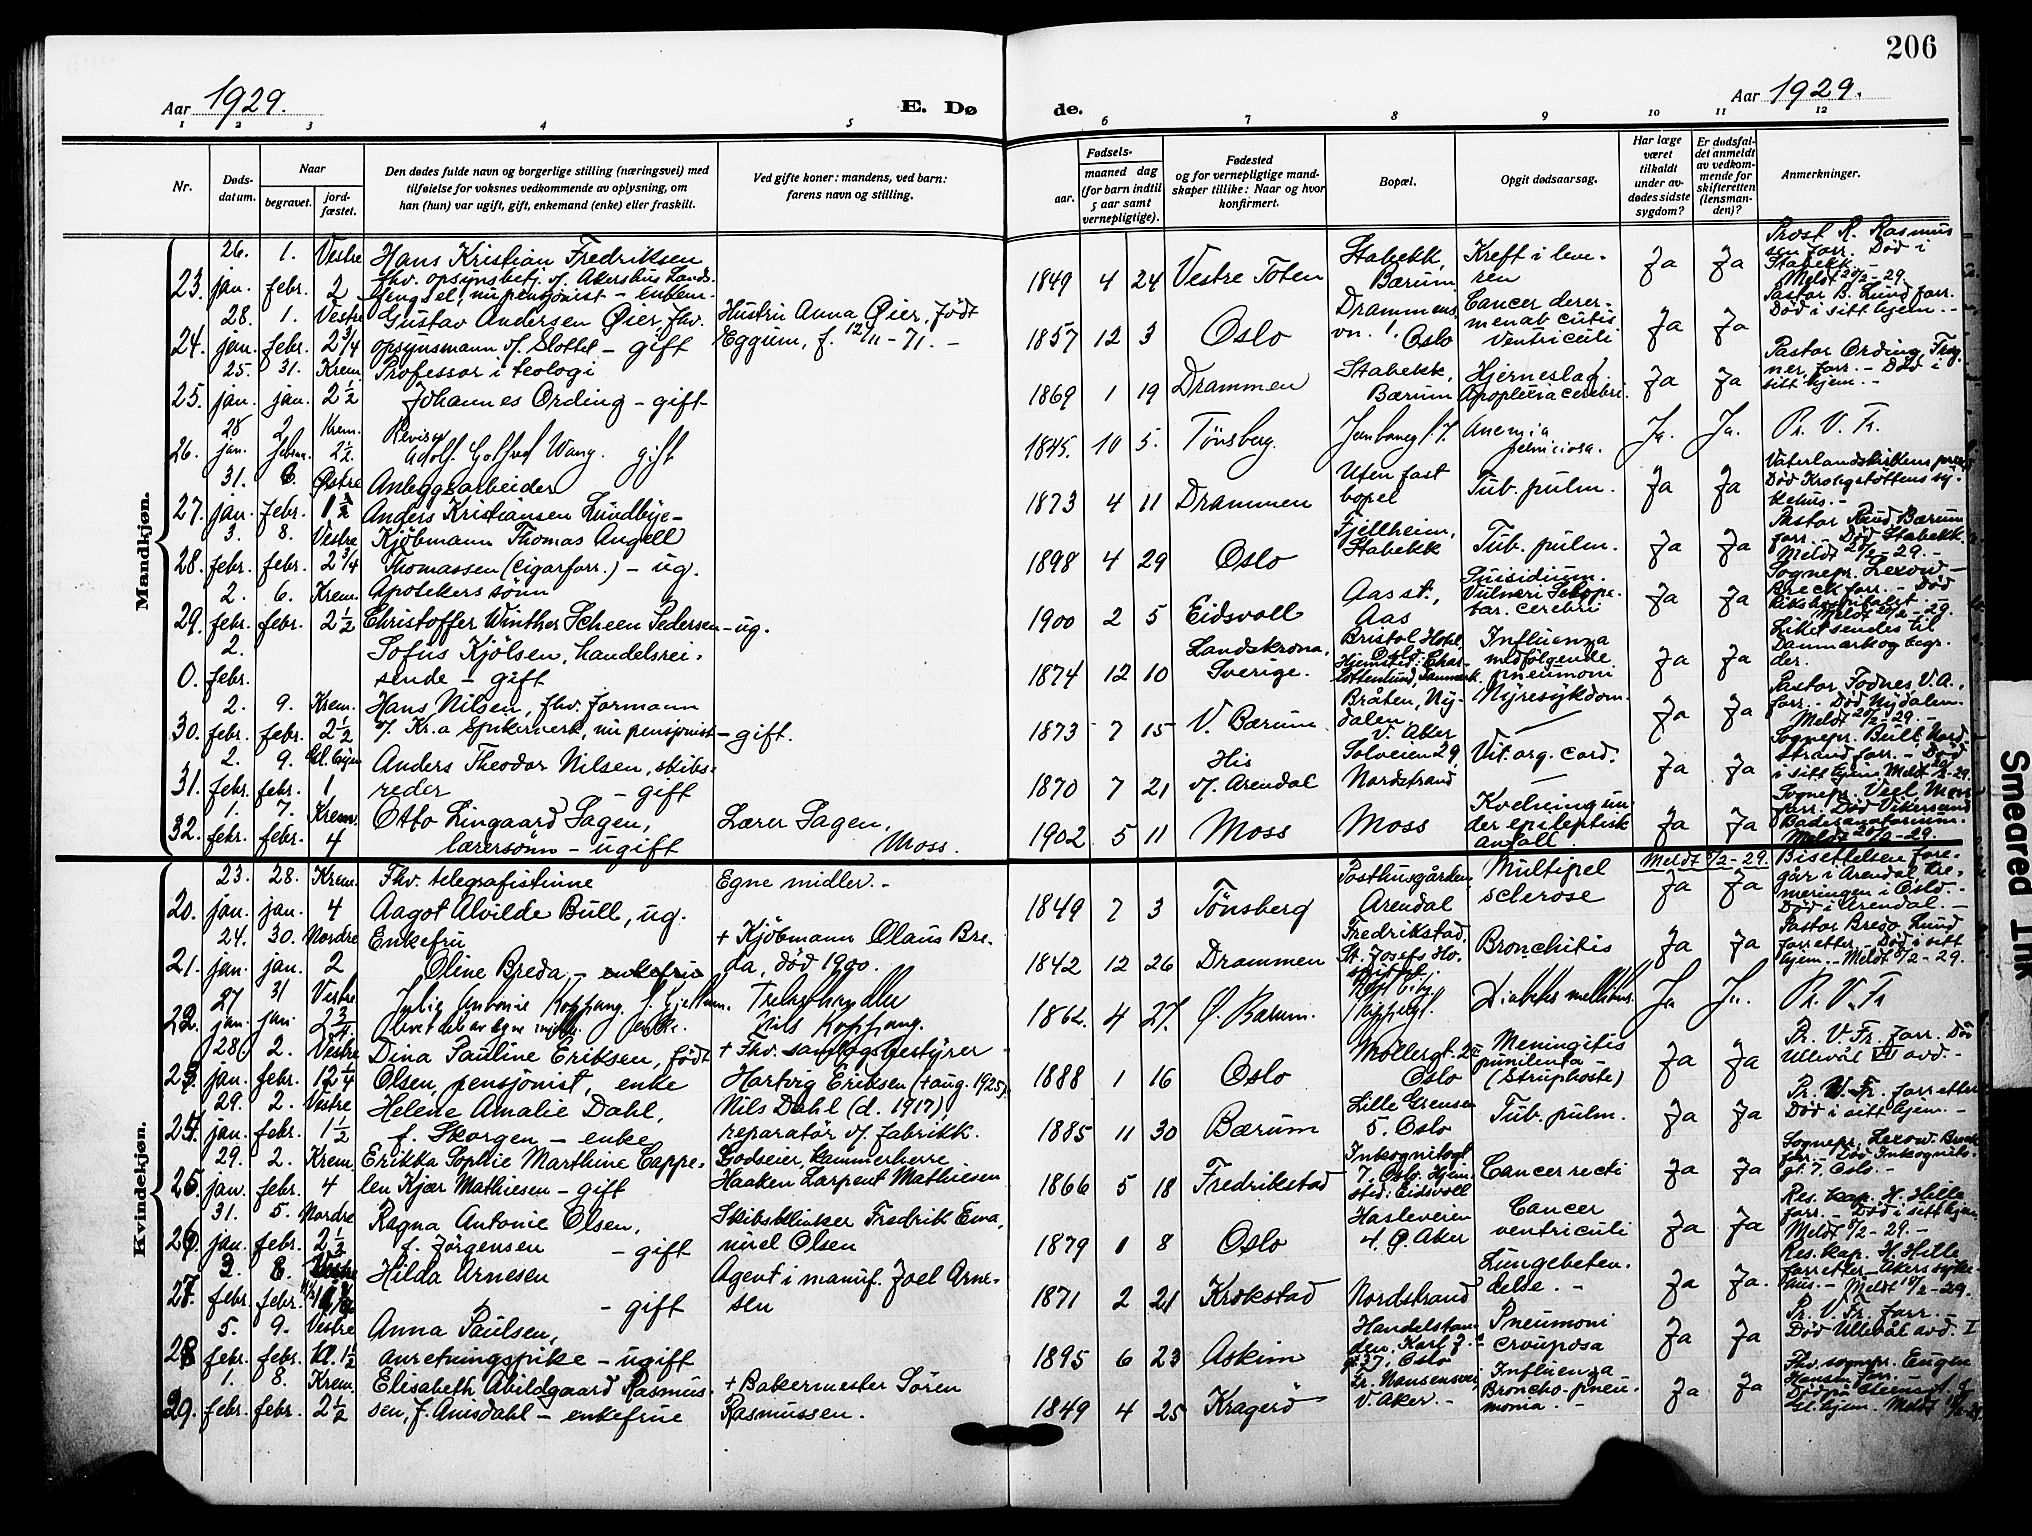 206
Aar 1929.
E. Dø
de.
Aar 1929.
1 2 3 4 5 6 7 8 9 10 11 12
Nr.
Døds-
datum.
Naar
begravet.
jord-
fæstet.
Den dødes fulde navn og borgerlige stilling (næringsvei) med
tilføielse for voksnes vedkommende av oplysning, om
han (hun) var ugift, gift, enkemand (enke) eller fraskilt.
Ved gifte koner: mandens, ved barn:
farens navn og stilling.
Fødsels-
aar.
maaned dag
(for barn indtil
5 aar samt
vernepligtige).
Fødested
og for vernepligtige mand-
skaper tillike: Naar og hvor
konfirmert.
Bopæl.
Opgit dødsaarsag.
Har læge
været
tilkaldt
under av-
dødes sidste
sygdom?
Er dødsfal-
det anmeldt
av vedkom-
mende for
skifteretten
(lensman-
den)?
Anmerkninger.
Mandkjøn.
23. 26. jan. 1. febr. Vestre 2
Hans Kristian Fredriksen
fhv. opsynsbetj. v/ Akershus Lands-
fengsel, nu pensjonist - enkem.
1849 4 24 Vestre Toten
Stabekk, Bærum
Kreft i leve-
ren
Ja Ja
Prost R. Rasmus
sen forr. Død i
Stabekk.
Meldt 20/2-29.
24. 28. jan. 1. febr. Vestre 2 3/4
Gustav Andersen Øier, fhv.
opsynsmann v/ Slottet - gift
Hustru Anna Øier, født
Eggum, f. 12/11-71. -
1857 12 3 Oslo
Drammens
vn. 1. Oslo
Cancer
ventriculi
Ja Ja
Pastor B. Lund forr.
Død i sitt hjem. -
25. 25. jan. 31. jan. Krem. 2 1/2
Professor i teologi
Johannes Ording - gift
1869 1 19 Drammen
Stabekk,
Bærum
Hjerneslag
Apoplexia cerebri.
Ja Ja
Pastor Ording, Frog
ner, forr. - Død i
sitt hjem. -
26. 28 jan. 2 febru. Krem. 2 1/2.
Revisor
Adolf Golfred Wang. gift
1845. 10 5. Tønsberg.
Anemia
perniciosa.
Ja. Ja.
Pr. V. Fr.
27. 31. jan. 6. febr. Østre 1 1/2
Anleggsarbeider
Anders Kristiansen Lundbye-
1873 4 11 Drammen
Uten fast
bopel
Tub. pulm.
Ja Ja
Vaterlandskirkens prest
Død Krohgstøttens sy-
kehus. -
28. 3. febr. 8. febr. Vestre 2 3/4
Kjøbmann Thomas Angell
Thomassen (cigarforr.) - ug.
1898 4 29 Oslo
Fjellheim,
Stabekk
Tub. pulm.
Ja Ja
Pastor Ruud Bærum
forr. - Død Stabekk.
Meldt 20/2-29. -
29. 2. febr. 6. febr. Krem. 2 1/2
Apotekers sønn
Christoffer Winther Scheen Pedersen - ug.
1900 2 5 Eidsvoll
Aas st.,
Aas
Suisidium.
Vulneri Sclope-
tar. cerebri
Ja Ja
Sognepr. Lexow-
Breck forr. - Død
Rikshospitalet. -
Meldt 20/2-29.
0. 2. febr.
Sofus Kjölsen, handelsrei-
sende - gift
1874 12 10 Landskrona,
Sverige.
Bristol Hotel,
Oslo
Hjemsted: Char-
lottenlund, Danmark.
Influenza
medfølgende
pneumoni
Ja Ja
Liket sendes til
Danmark og begr.
der.
30. 2. febr. 9. febr. Krem. 2 1/2
Hans Nilsen, fhv. formann
v/ Kr.a Spikerverk, nu pensjonist - gift.
1873 7 15 V. Bærum
Bråten, Ny-
dalen,
V. Aker
Nyresykdom.
Ja Ja
Pastor Fodnes V. A.,
forr. - Død Nydalen.
Meldt 20/2-29. -
31. 2. febr. 9. febr. 1
Anders Theodor Nilsen, skibs-
reder - gift
1870 7 21 His
v/ Arendal
Solveien 29,
Nordstrand
Vit. org. cord.
Ja Ja
Sognepr. Bull Nord-
strand forr. - Død
i sitt hjem. Meldt 20/2-29.
32. 1. febr. 7. febr. Krem. 4
Otto Lingaard Sagen,
lærersønn - ugift
Lærer Sagen,
Moss.
1902 5 11 Moss
Moss
Kvelning un-
der epileptisk
anfall.
Ja Ja
Sognepr. Viel Moss
forr. Død Vikersund
Badesanatorium.
Meldt 20/2-29.
Kvindekjøn.
20. 23. jan. 28. jan. Krem. 4
Fhv. telegrafistinne
Aagot Alvilde Bull, ug.
Egne midler. -
1849 7 3 Tönsberg
Posthusgården
Arendal
Multipel
sclerose
Meldt 8/2-29.
Ja Ja
Bisettelsen fore-
går i Arendal Kre-
meringen i Oslo. -
Død i Arendal. -
21. 24. jan. 30. jan. Nordre 2
Enkefru
Oline Breda, - enkefrue
+ Kjøbmann Olaus Bre-
da, død 1900.
1842 12 26 Drammen
Fredrikstad.
St. Josefs Ho-
spital.
Bronchitis
Ja Ja
Pastor Bredo Lund
forretter. - Død i sitt
hjem. - Meldt 8/2-29.
22. 27 jan. 31 jan. Vestre 2 3/4.
Julie Antonie Koppang f. Gjellum.
levet del av egne midler. enke.
Trelasthandler
Nils Koppang.
1862. 4 27. Ø. Bærum.
Diabetes mellitus.
Ja Ja.
Pr. V. Fr
23. 28. jan. 2. febr. Vestre 12 1/4
Dina Pauline Eriksen, født
Olsen, pensjonist, enke
+ Fhv. samlagsbestyrer
Hartvig Eriksen (+ aug. 1925).
1888 1 16 Oslo
Møllergt. 22
Oslo
Meningitis
purulenta
(Struphoste)
Ja Ja
Pr. V. Fr. forr. Dö
Ullevål VII avd. -
24. 29. jan. 2. febr. Vestre 1 1/2
Helene Amalie Dahl,
f. Skorgen - enke
Nils Dahl (d. 1917)
reparatør v/ fabrikk.
1885 11 30 Bærum
Lille Grensen
5. Oslo
Tub. pulm.
Ja Ja
Pr. V. Fr. forretter
Død i sitt hjem. -
25. 29. jan. 2. febr. Krem. 4
Erikka Sophie Marthine Cappe-
len Kjær Mathiesen - gift
Godseier, kammerherre
Haaken Larpent Mathiesen
1866 5 18 Fredrikstad
Inkognitogt
7, Oslo. Hjem-
sted: Eidsvoll
Cancer recti
Ja Ja
Sognepr. Lexow-Breck
forr. - Død Inkognito-
gt. 7, Oslo. -
26. 31. jan. 5. febr. Nordre 2 1/2
Ragna Antonie Olsen,
f. Jörgensen - gift
Skibsklinker Fredrik Ema-
nuel Olsen
1879 1 8 Oslo
Hasleveien
4. Ø. Aker
Cancer
ventriculi
Ja Ja
Res. kap. H. Hille
forr. - Død i sitt hjem.
Meldt 8/2-29. -
27. 3. febr. 8. febr. Vestre
Hilda Arnesen
- gift
Agent i manuf. Joel Arne-
sen
1871 2 21 Krokstad
Nordstrand
Lungebeten-
delse. -
Ja Ja.
Res. kap. H. Hille
forretter - Akers syke-
hus. - Meldt 10/2-29.
28 5. febr. 9. febr. Vestre Kl. 1 1/2
Anna Paulsen,
anretningspike - ugift
1895 6 23 Askim
Handelstan-
den. Karl J.
gt 37, Oslo
Pneumoni
crouposa
Ja Ja
Pr. V. Fr. forr. -
Död Ullevål avd. I
29. 1. febr. 8. febr. Krem. 2 1/2
Elisabeth Abildgaard Rasmus-
sen, f. Amsdahl - enkefrue
+ Bakermester Sören
Rasmussen.
1849 4 25 Kragerö
Fr. Nansensvei
V. Aker. -
Influenza
Broncho-pneu-
monia. -
Ja Ja
Fhv. sognepr. Eugen
Hansen forr. -
Smeared Ink